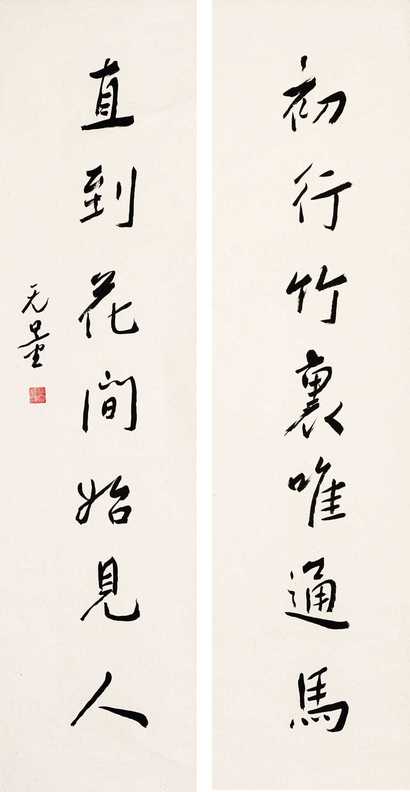 初行竹裏唯通馬
直到花間始見人
无量